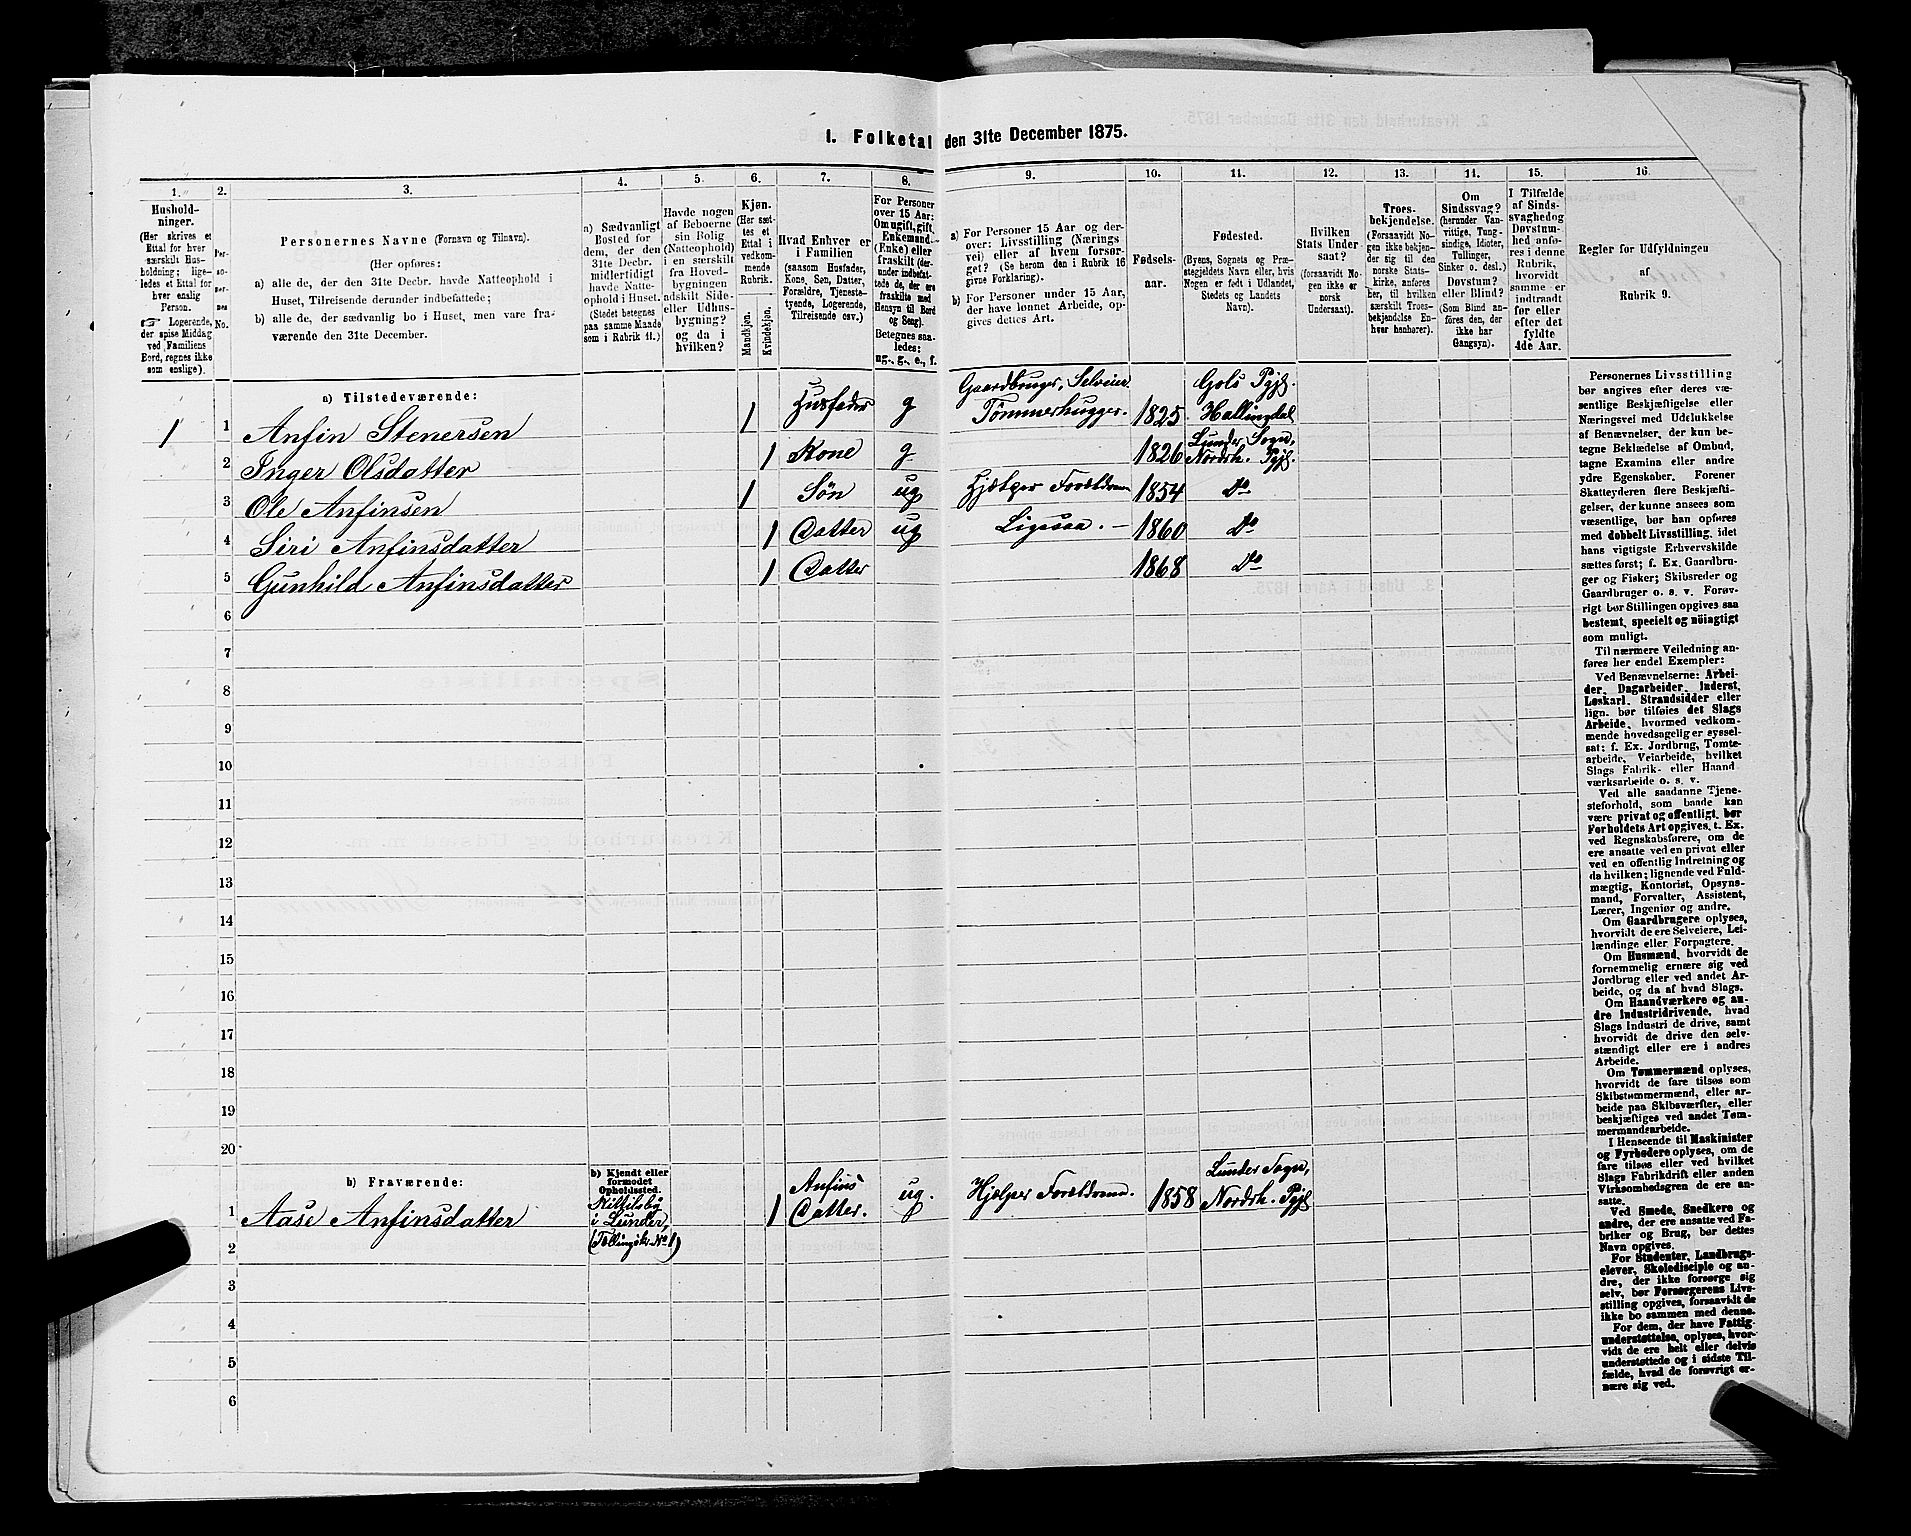 I. Folketal den 31te December 1875.
1. 2. 3. 4. 5. 6. 7. 8. 9. 10. 11. 12. 13. 14. 15. 16.
Hushold-
ninger.
(Her skrives et
Ettal for hver
særskilt Hus-
holdning; lige-
ledes et Ettal for
hver enslig
Person.
☞ Logerende,
der spise Middag
ved Familiens
Bord, regnes ikke
som enslige).
Per-
so-
ner-
nes
No.
Personernes Navne (Fornavn og Tilnavn).
(Her opføres:
a) alle de, der den 31te Decbr. havde Natteophold i
Huset, Tilreisende derunder indbefattede;
b) alle de, der sædvanlig bo i Huset, men vare fra-
værende den 31te December.
a) Sædvanligt
Bosted for
dem, der den
31te Decbr.
midlertidigt
havde Natte-
ophold i Huset.
(Stedet betegnes
paa samme Maade
som i Rubrik 11.)
Havde nogen
af Beboerne
sin Bolig
(Natteophold)
i en særskilt
fra Hoved-
bygningen
adskilt Side-
eller Udhus-
bygning?
og da i
hvilken?
Kjøn.
(Her sæt-
tes et
Ettal i
vedkom-
mende
Rubrik.
Mandkjøn.
Kvindekjøn.
Hvad Enhver er
i Familien
(saasom Husfader,
Kone, Søn, Datter,
Forældre, Tjeneste-
tyende, Logerende,
Tilreisende osv.)
For Personer
over 15 Aar:
Om ugift, gift,
Enkemand
(Enke) eller
fraskilt (der-
under indbefat-
tede de, der ere
fraskilte med
Hensyn til Bord
og Seng).
Betegnes saa-
ledes:
ug., g., e., f.
a) For Personer 15 Aar og der-
over: Livsstilling (Nærings
vei) eller af hvem forsør-
get? (Se herom den i Rubrik 16
givne Forklaring).
b) For Personer under 15 Aar,
der have lønnet Arbeide, op-
gives dettes Art.
Fødsels-
aar.
Fødested.
(Byens, Sognets og Præ-
stegjeldets Navn eller, hvis
Nogen er født i Udlandet,
Stedets og Landets
Navn).
Hvilken
Stats Under-
saat?
(forsaavidt No-
gen ikke er
norsk
Undersaat).
Troes-
bekjendelse.
(Forsaavidt No-
gen ikke bekjen-
der sig til den
norske Stats-
kirke, anføres
her, til hvilken
særskilt Troes-
bekjendelse En-
hver henhører).
Om
Sindssvag?
(herunder Van-
vittige, Tung-
sindige, Idioter,
Tullinger,
Sinker o. desl.)
Døvstum?
eller Blind?
(Som Blind an-
føres den, der
ikke har
Gangsyn).
I Tilfælde
af Sinds-
svaghed og
Døvstum-
hed anfø-
res i denne
Rubrik,
hvorvidt
samme er
indtraadt
før eller
efter det
fyldte
4de Aar.
Regler for Udfyldningen
af
Rubrik 9.
a) Tilstedeværende:
Gaardbruger, Selveier Gols Pgjl.
1 1 Anfin Stenersen 1 Husfader g Tømmerhugger. 1825 Hallingdal
Lunder Sogn,
2 Inger Olsdatter 1 Kone g 1826 Nordrh. Pgjl.
3 Ole Anfinsen 1 Søn ug Hjælper Forældrene 1854 Do
4 Siri Anfinsdatter 1 Datter ug Ligesaa. — 1860 Do
5 Gunhild Anfinsdatter 1 Datter 1868 Do
6
7
8
9
10
11
12
13
14
15
16
17
18
19
20
b) Fraværende:
b) Kjendt eller
formodet
Opholdssted.
1 Aase Anfinsdatter
Kittilsby
i Lunder,
(Tællingskr. No 1)
1
Anfins
Datter.
ug.
Hjælper Forældrene.
1858
Lunder Sogn,
Nordrh. Pgjl
2
3
4
5
6
Personernes Livsstilling
bør angives efter deres væ-
sentlige Beskjæftigelse eller
Næringsvei med Udelukkelse
af Benævnelser, der kun be-
tegne Beklædelse af Ombud,
tagne Examina eller andre
ydre Egenskaber. Forener
Skatteyderen flere Beskjæfti-
gelser, der kunne ansees som
væsentlige, bør han opføres
med dobbelt Livsstilling, idet
hans vigtigste Erhvervskilde
sættes først; f. Ex. Gaardbru-
ger og Fisker; Skibsreder og
Gaardbruger o. s. v. Forøv-
rigt bør Stillingen opgives saa
bestemt, specielt og nøiagtigt
som muligt.
Til nærmere Veiledning an-
føres her endel Exempler:
Ved Benævnelserne: Arbei-
der, Dagarbeider, Inderst,
Løskarl, Strandsidder eller
lign. bør tilføies det Slags
Arbeide, hvormed vedkom-
mende hovedsagelig er syssel-
sat; f. Ex. Jordbrug, Tomte-
arbeide, Veiarbeide, hvilket
Slags Fabrik- eller Haand
værksarbeide o. s. v.
Ved alle saadanne Tjene-
steforhold, som baade kan
være privat og offentligt, bør
Forholdets Art opgives, t. Ex.
ved Regnskabsførere, om de
ere ansatte ved en privat eller
ved en offentlig Indretning og
da hvilken; lignende ved Fuld-
mægtig, Kontorist, Opsyns-
mand, Forvalter, Assistent,
Lærer, Ingeniør og andre.
Om Gaardbrugere oplyses,
hvorvidt de ere Selveiere, Lei-
lændinge eller Forpagtere.
Om Husmænd, hvorvidt de
fornemmelig ernære sig ved
Jordbrug eller ved andet Ar-
beide, og da af hvad Slags.
Om Haandværkere og an-
dre Industridrivende, hvad
Slags Industri de drive, samt
hvorvidt de drive den selv-
stændigt eller ere i andres
Arbeide.
Om Tømmermænd oplyses,
hvorvidt de fare tilsøs som
Skibstømmermænd, eller ar-
beide paa Skibsværfter, eller
beskjæftiges ved andet Tøm-
mermandsarbeide.
I Henseende til Maskinister
og Fyrbødere oplyses, om de
fare tilsøs eller ved hvilket
Slags Fabrikdrift eller anden
Virksomhedsgren de ere an-
satte.
Ved Smede, Snedkere og
andre, der ere ansatte ved Fa-
briker og Brug, bør dettes
Navn opgives.
For Studenter, Landbrugs-
elever, Skoledisciple og an-
dre, der ikke forsørge sig
selv, bør Forsørgerens Livs-
stilling opgives, forsaavidt de
ikke bo sammen med denne.
For dem, der have Fattig-
understøttelse, oplyses, hvor-
vidt de ere helt eller delvis
understøttede og i sidste Til-
fælde, hvad de forøvrigt er-
nære sig ved.